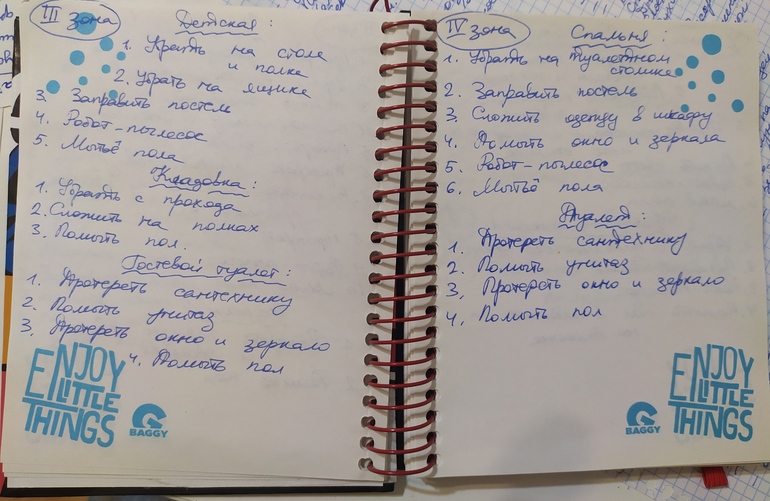 III зона
Детская:
1. Убрать на столе
и полке
2. Убрать на ящике
3. Заправить постель
4. Робот-пылесос
5. Мытьё пола
Кладовка:
1. Убрать с прохода
2. Сложить на полках
3. Помыть пол.
Гостевой туалет:
1. Протереть сантехнику
2. Помыть унитаз
3. Протереть окно и зеркало
4. Помыть пол
ENJOY
LITTLE
THINGS
BAGGY
IV зона
Спальня:
1. Убрать на туалетном
столике
2. Заправить постель
3. Сложить одежду в шкафу
4. Помыть окно и зеркала
5. Робот-пылесос
6. Мытьё пола
Туалет:
1. Протереть сантехнику
2. Помыть унитаз
3. Протереть окно и зеркало
4. Помыть пол
ENJOY
LITTLE
THINGS
BAGGY